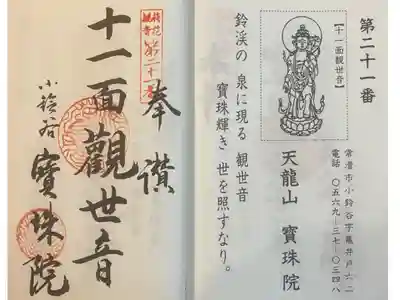 第二十一番
【十一面観世音】
常滑市小鈴谷字亀井戸六二
電話 〇五六九―三七―〇三四八
天龍山 寶珠院
鈴渓の 泉に現る 観世音
寶珠輝き 世を照すなり。
第二十一
奉讃
十一面觀世音
小鈴谷 寶珠院